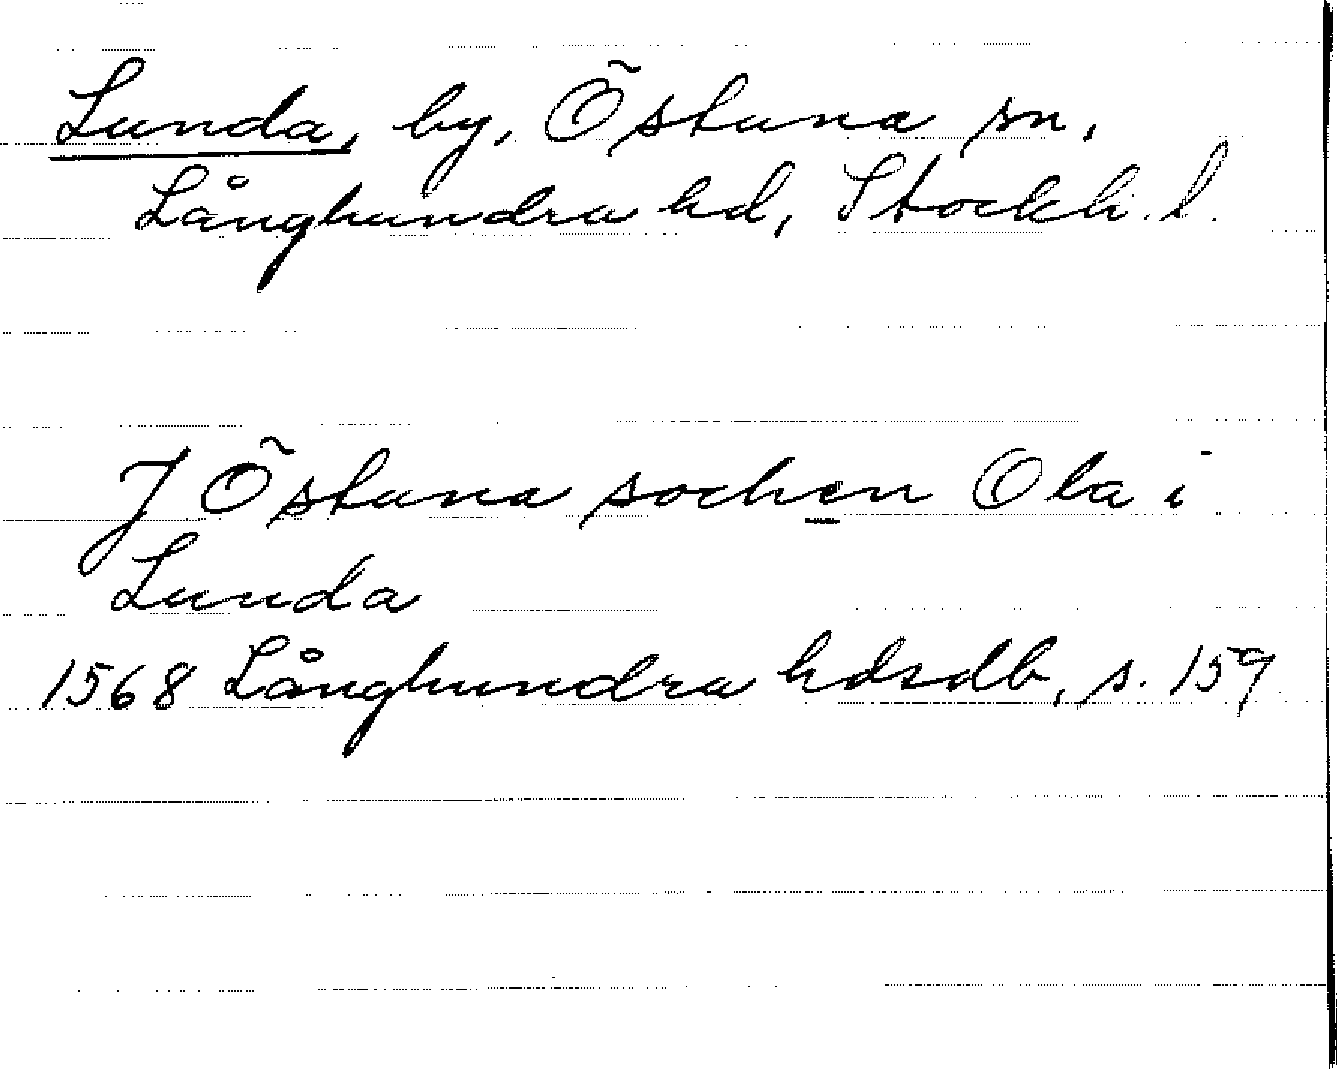 Lunda, by, Östuna sn,
Långhundra hd, Stockh. l.
J Östuna sochen Ola i
Lunda
1568 Långhundra hdsdb, s. 159